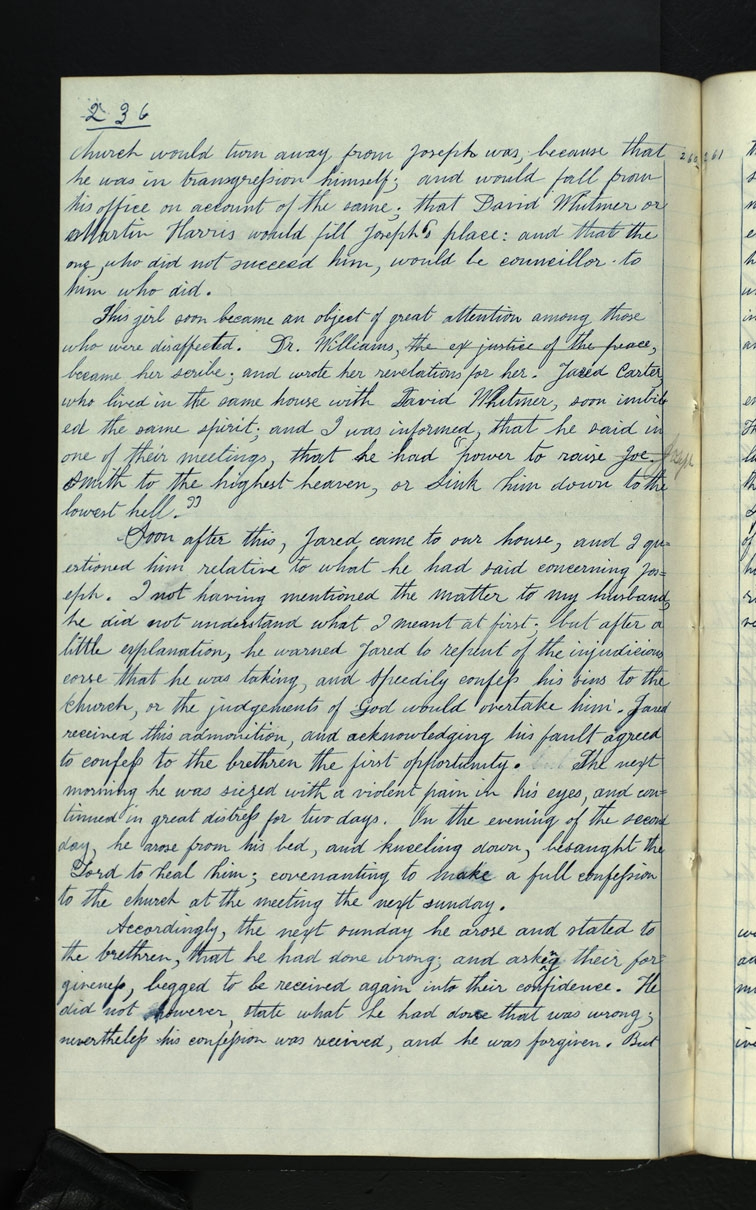 236
church would turn away from Joseph was, because that
he was in transgression himself; and would fall from
his office on account of the same; that David Whitmer or
Martin Harris would fill Joseph's place: and that the
one, who did not succeed him, would be councillor to
him who did.
This girl soon became an object of great attention among those
who were disaffected. Dr. Williams, the ex justice of the peace,
became her scribe; and wrote her revelations for her. Jared Carter,
who lived in the same house with David Whitmer, soon imbib
ed the same spirit; and I was informed, that he said in
one of their meetings, that he had "power to raise Joe. Joseph
Smith to the highest heaven, or sink him down to the
lowest hell."
Soon after this, Jared came to our house, and I qu=
estioned him relative to what he had said concerning Jos=
eph. I not having mentioned the matter to my husband,
he did not understand what I meant at first; but after a
little explanation, he warned Jared to repent of the injudicious
corse that he was taking, and speedily confess his sins to the
church, or the judgements of God would overtake him. Jared
received this admonition, and acknowledging his fault agreed
to confess to the brethren the first opportunity. The next
morning he was siezed with a violent pain in his eyes, and con=
tinued in great distress for two days. On the evening of the second
day, he arose from his bed, and kneeling down, besaught the
Lord to heal him; covenanting to make a full confession
to the church at the meeting the next sunday.
Accordingly, the next sunday he arose and stated to
the brethren, that he had done wrong; and asking their for=
giveness, begged to be received again into their confidence. He
did not however, state what he had done that was wrong;
nevertheless his confession was received, and he was forgiven. But